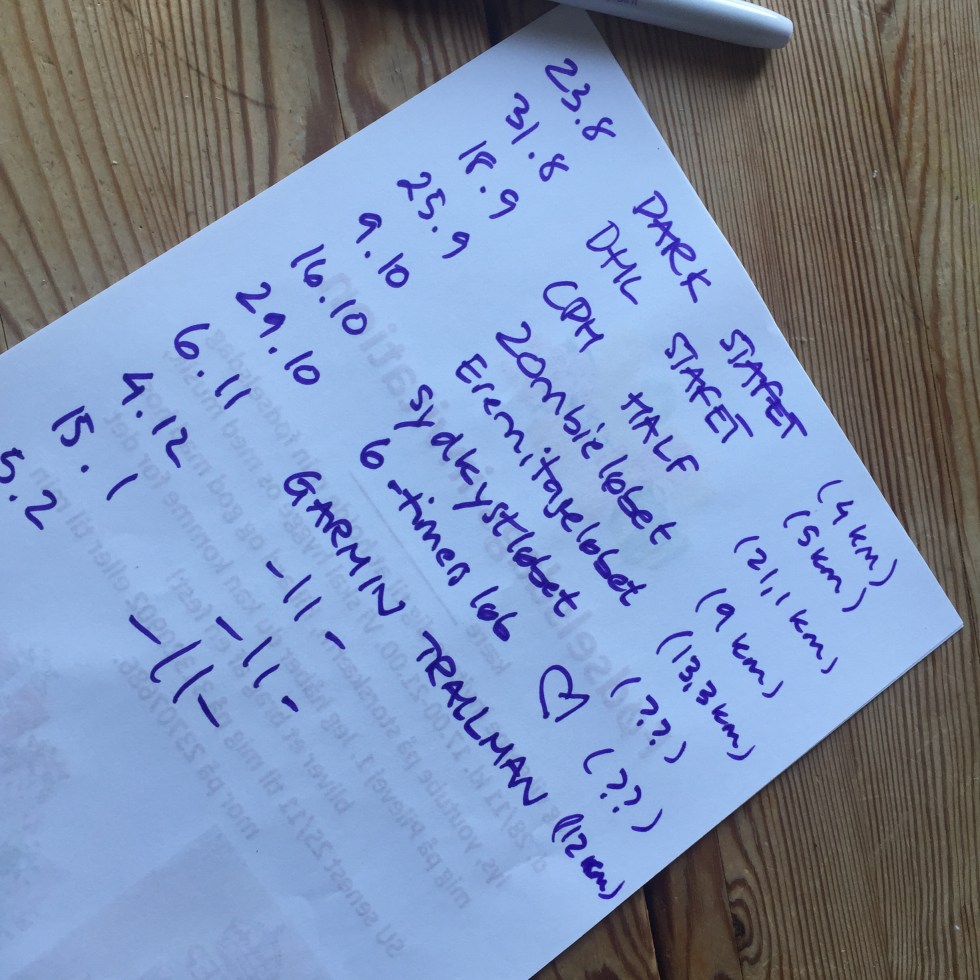 23.8 DARK STAFET (4 km)
31.8 DHL STAFET (5 km)
18.9 CPH HALF (21,1 km)
25.9 Zombieløbet (9 km)
9.10 Eremitageløbet (13,3 km)
16.10 Sydkystløbet (??)
29.10 6-timers løb ♡ (??)
6.11 GARMIN TRAILMAN (12 km)
4.12 -11-
15.1 -11-
5.2 -11-